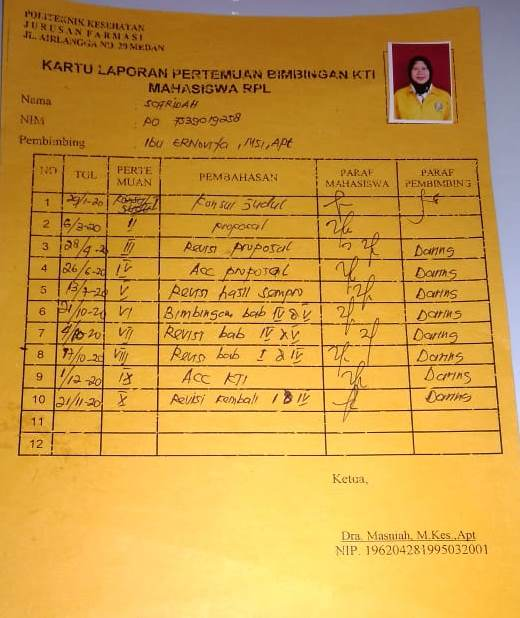 POLITEKNIK KESEHATAN
JURUSAN FARMASI
JL. AIRLANGGA NO. 29 MEDAN
KARTU LAPORAN PERTEMUAN BIMBINGAN KTI
MAHASISWA RPL
Nama : SOFRIDAH
NIM : PO 7539019258
Pembimbing : Ibu ERNOVIYA, MSi, Apt
NO TGL PERTEMUAN PEMBAHASAN PARAF MAHASISWA PARAF PEMBIMBING
1 29/1-20 Konsul Judul
2 6/3-20 II proposal
3 28/4-20 III Revisi proposal Daring
4 26/6-20 IV Acc proposal Daring
5 13/7-20 V Revisi hasil sempro Daring
6 21/10-20 VI Bimbingan bab IV & V Daring
7 VII Revisi bab IV & V Daring
8 17/10-20 VIII Revisi bab I & IV Daring
9 1/12-20 IX ACC KTI Daring
10 21/11-20 X Revisi kembali I & IV Daring
11
12
Ketua,
Dra. Masniah, M.Kes.,Apt
NIP. 196204281995032001